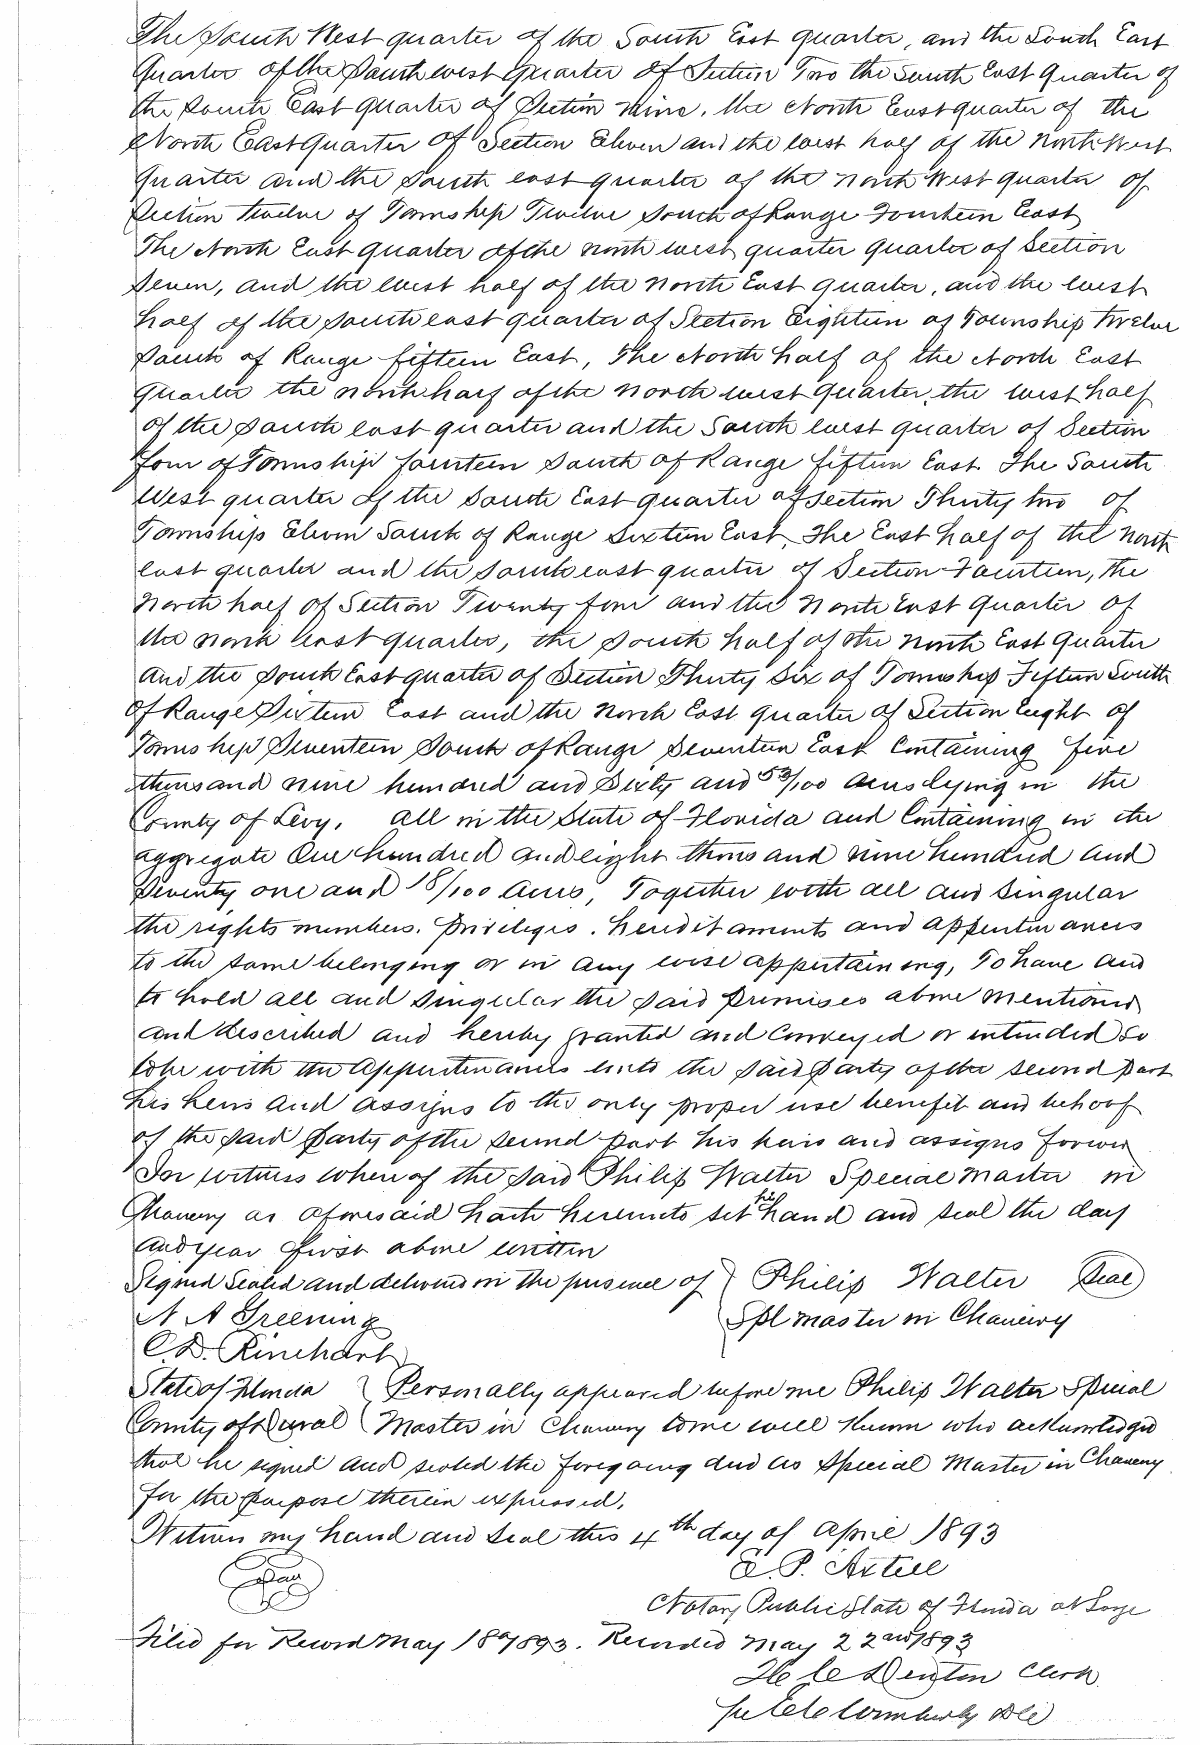 The South West quarter of the South East quarter, and the South East
Quarter of the South west Quarter of Section Two the South East Quarter of
the South East quarter of Section Nine. the North East quarter of the
North East Quarter of Section Eleven and the west half of the North West
Quarter and the South east quarter of the North West quarter of
Section Twelve of Township Twelve South of Range Fourteen East
The North East quarter of the north west quarter quarter of Section
Seven, and the west half of the North East quarter, and the west
half of the South east quarter of Section Eighteen of Township Twelve
South of Range fifteen East, The North half of the North East
Quarter the north half of the North west Quarter, the west half
of the South east quarter and the South west quarter of Section
four of Township fourteen South of Range fifteen East. The South
West quarter of the South East quarter of Section Thirty two of
Township Eleven South of Range Sixteen East, The East half of the North
east quarter and the South east quarter of Section Fourteen, the
North half of Section Twenty four and the North East Quarter of
the North East quarter, the South half of the North East Quarter
and the South East quarter of Section Thirty Six of Township Fifteen South
of Range Sixteen East and the North East Quarter of Section Eight of
Township Seventeen South of Range Seventeen East Containing five
thousand nine hundred and Sixty and 53/100 acres lying in the
County of Levy. All in the State of Florida and Containing in the
aggregate One hundred and eight thousand nine hundred and
Seventy one and 18/100 Acres, Together with all and Singular
the rights members. privileges. hereditaments and appurtenances
to the same belonging or in any wise appertaining, To have and
to hold all and Singular the said premises above mentioned
and described and hereby granted and Conveyed or intended So
to be with the appurtenances unto the said party of the second part
his heirs and assigns to the only proper use benefit and behoof
of the said party of the second part his heirs and assigns forever
In witness whereof the said Philip Walter Special Master in
Chancery as aforesaid hath hereunto set his hand and seal the day
and year first above written
Signed Sealed and delivered in the presence of } Philip Walter (Seal)
N A Greening Spl master in Chancery
C. D. Rinehart
State of Florida } Personally appeared before me Philip Walter Special
County of Duval Master in Chancery to me well known who acknowledged
that he signed and sealed the foregoing deed as Special Master in Chancery
for the purpose therein expressed.
Witness my hand and seal this 4th day of April 1893
Seal E. P. Axtell
Notary Public State of Florida at Large
Filed for Record May 18 1893. Recorded May 22nd 1893
Denton Clerk
DC